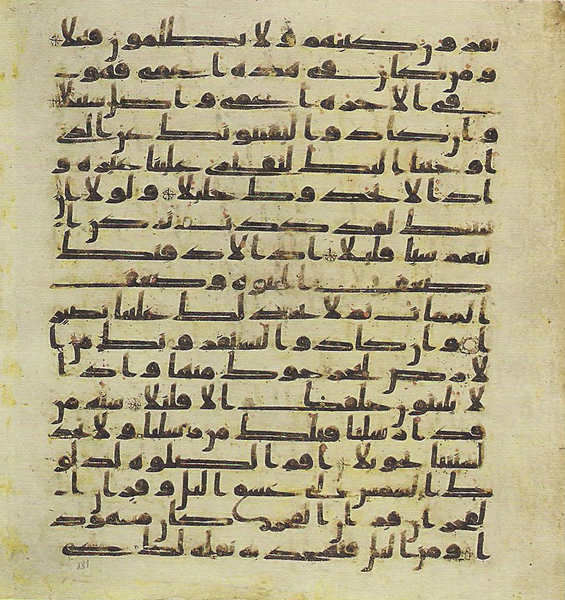 يقرون كتبهم ولا يظلمون فتيلا
ومن كان في هذه اعمى فهو
في الاخرة اعمى واضل سبيلا
وان كادوا ليفتنونك عن الذي
اوحينا اليك لتفتري علينا غيره و
اذا لاتخذوك خليلا ولولا ان
ثبتنك لقد كدت تركن ا
ليهم شيا قليلا اذا لاذقنك
ضعف الحيوة وضعف
الممات ثم لا تجد لك علينا نصير
ا وان كادوا ليستفزونك من ا
لارض ليخرجوك منها واذا
لا يلبثون خلفك الا قليلا سنة من
قد ارسلنا قبلك من رسلنا ولا تجد
لسنتنا تحويلا اقم الصلوة لدلو
ك الشمس الى غسق اليل وقران ا
لفجر ان قران الفجر كان مشهود
ا ومن اليل فتهجد به نافلة لك عسى